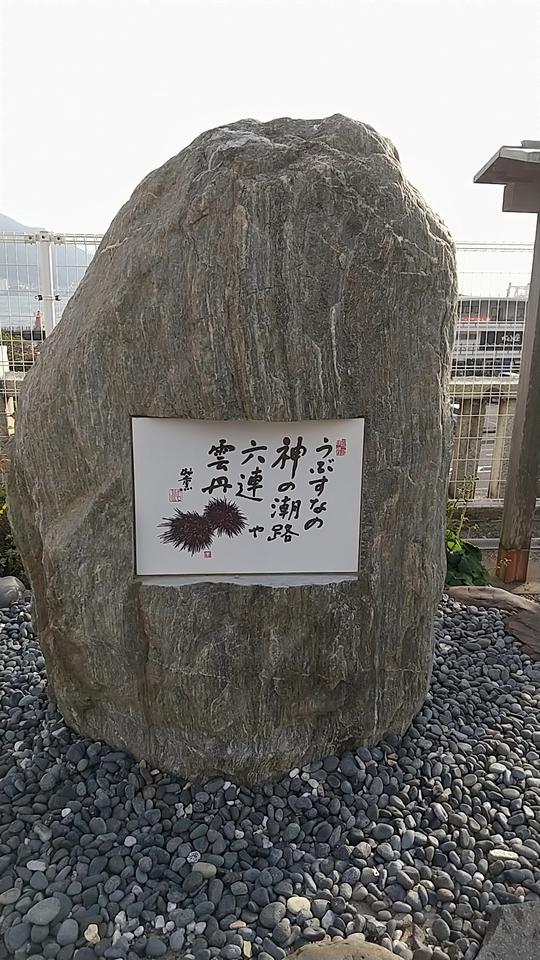 うぶすなの
神の潮路や
六連
雲丹